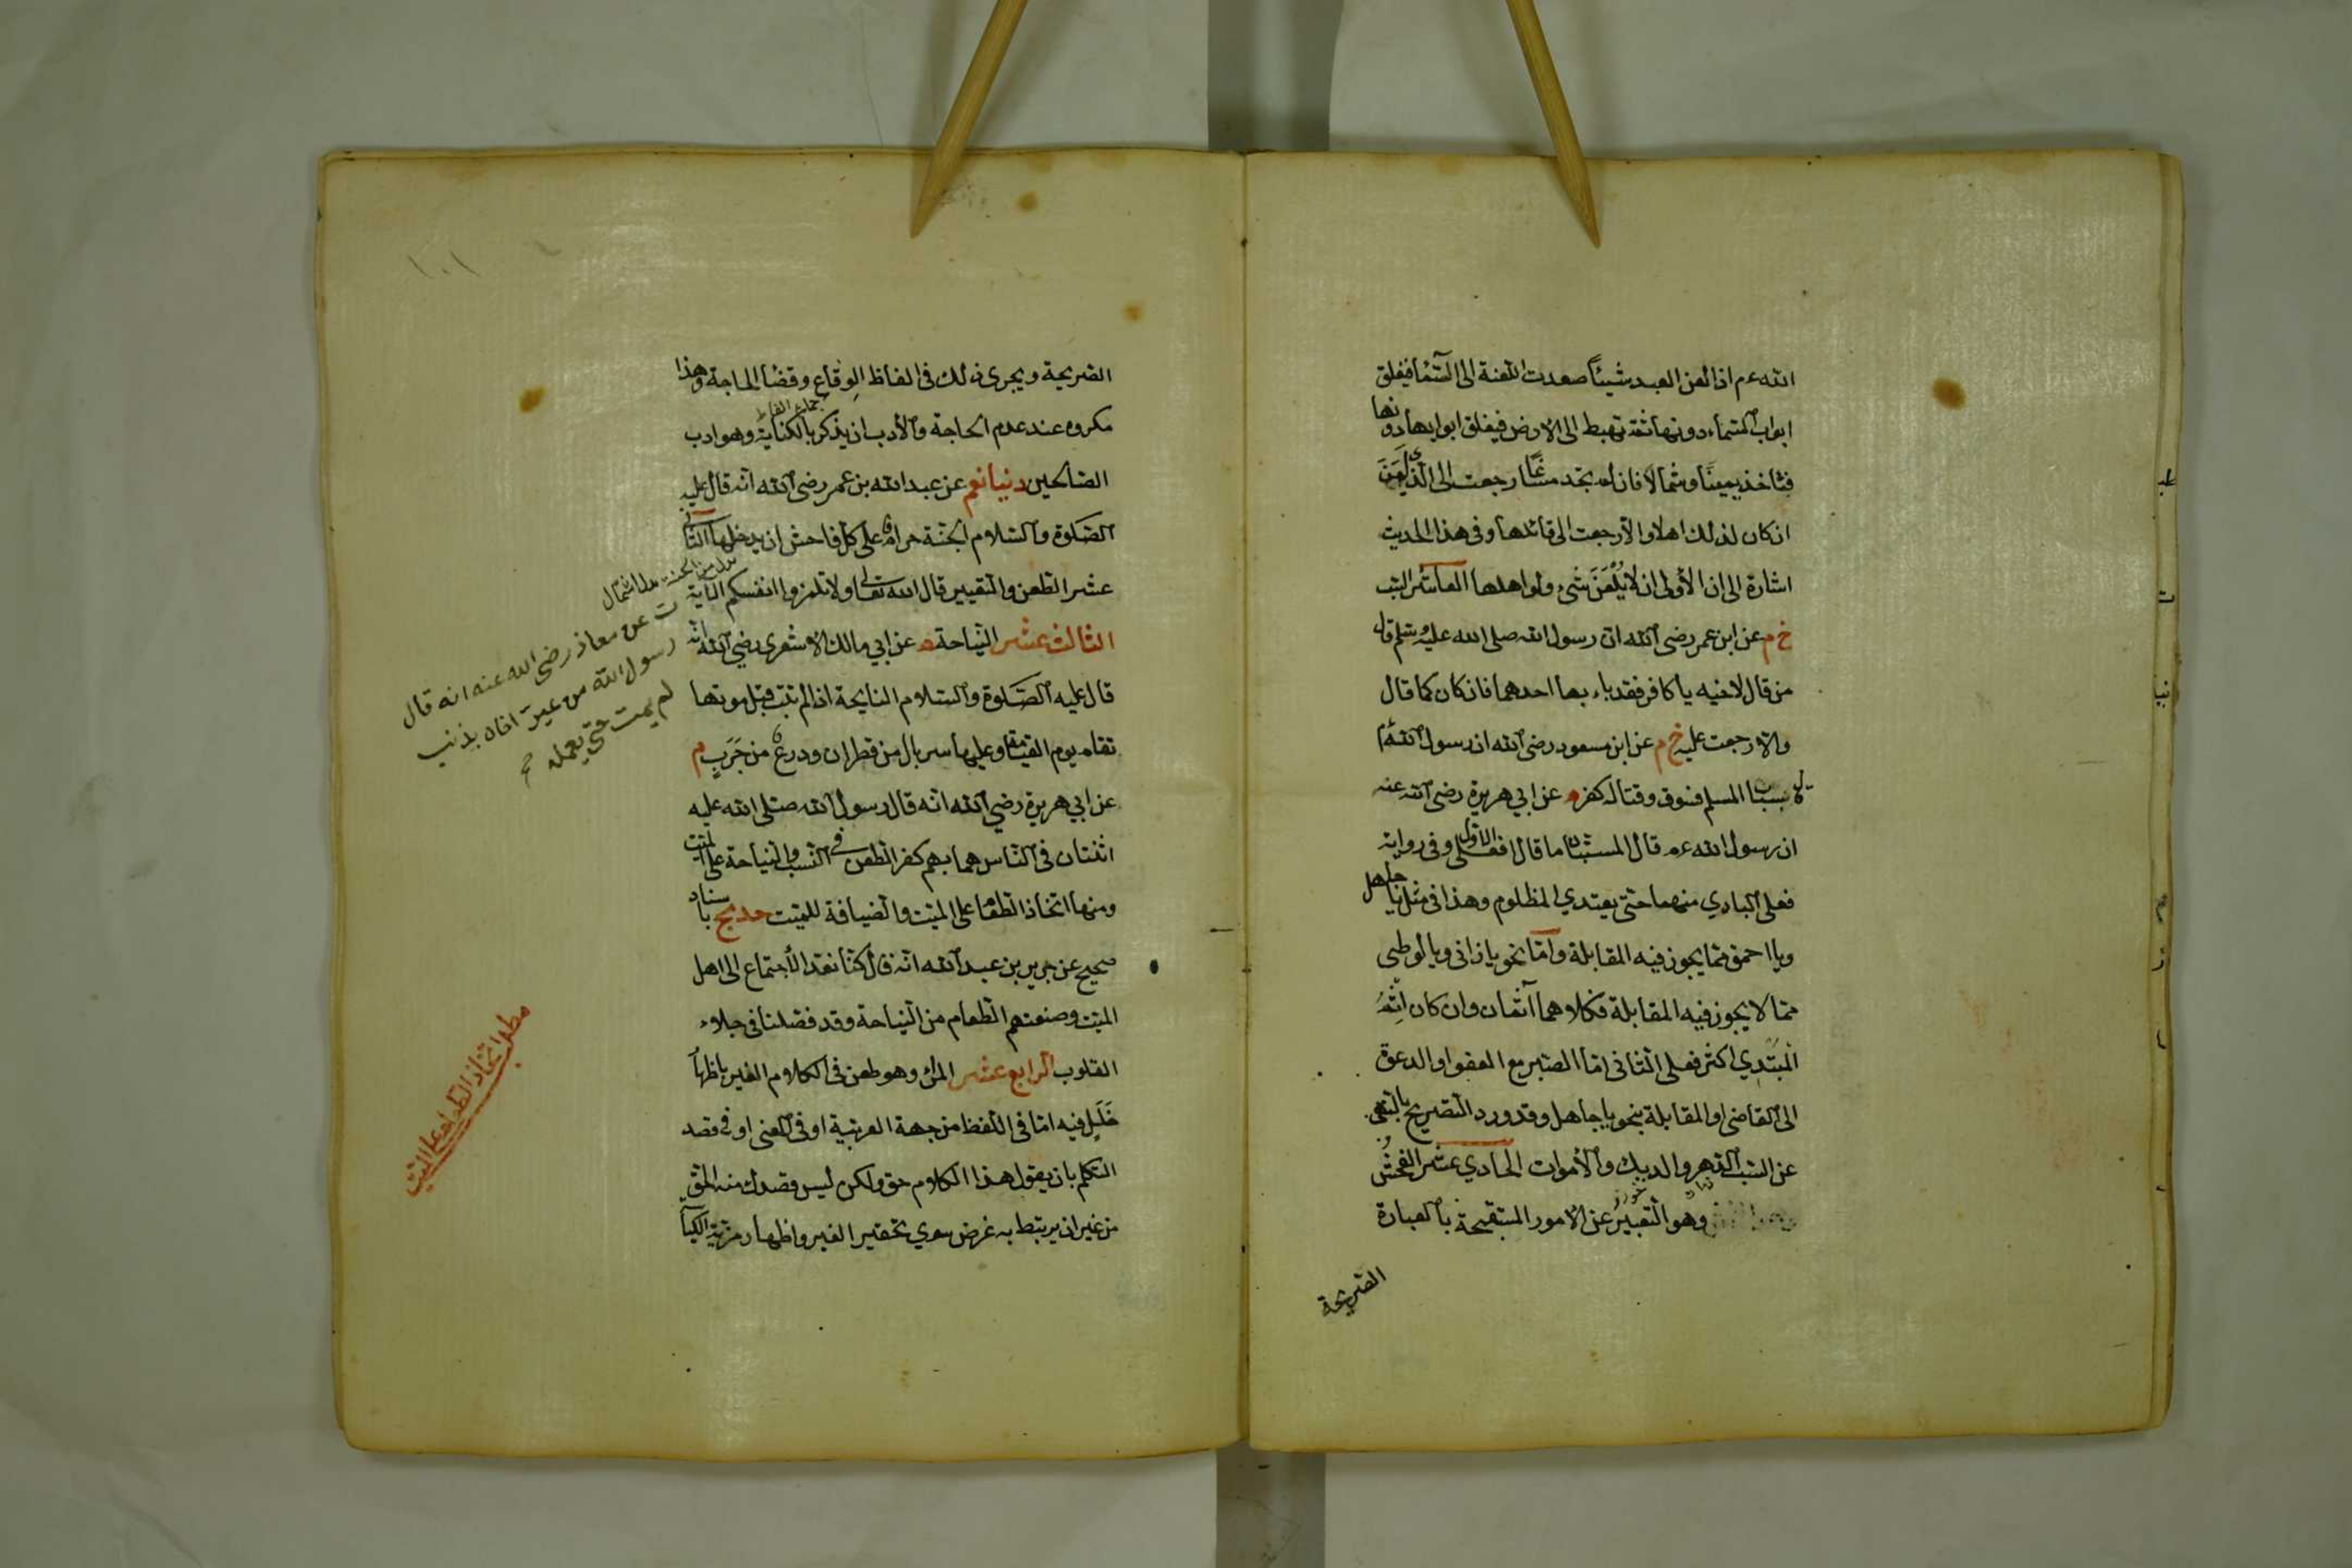 الله عم اذا لعن العبد شيئاً صعدت اللعنة الى السّما فيغلق
ابواب السّماء دونها ثمّ تهبط الى الارض فيغلق ابوابها دونها
فتاخذ يميناً وشمالا فان لم تجد مساغاً رجعت الى الّذي لُعِنَ
ان كان لذلك اهلا والّا رجعت الى قائلها وفى هذا الحديث
اشارة الى ان الأولى ان لا يُلْعَنَ شئ ولو اهلها العاشر السّب
خ م عن ابن عمر رضى الله ان رسول الله صلى الله عليه وسلم قال
من قال لاخيه يا كافر فقد باء بها احدهما فان كان كما قال
والّا رجعت عليه خ م عن ابن مسعود رضى الله ان رسول الله
سباب المسلم فسوق وقتاله كفر م عن ابي هريرة رضى الله عنه
ان رسول الله عم قال المستبّان ما قالا فعلى الاوّل وفى رواية
فعلى البادي منهما حتى يعتدي المظلوم وهذا فى مثل يا جاهل
ويا احمق ممّا يجوز فيه المقابلة وامّا نحو يا زانى ويا لوطى
ممّا لا يجوز فيه المقابلة فكلاهما آثمان وان كان اِثْمُ
المُبتَدِي اكثر فعلى الثانى امّا الصّبر مع العفو او الدعوة
الى القاضى او المقابلة بنحو يا جاهل وقد ورد التصريح بالنّهى
عن السّب الدّهر والديك والأموات الحادي عشر الفحشُ
وهو التّعبيرُ عن الامور المستقبحة بالعبارة
الصّريحة
١٠١
الصّريحة ويجرى ذلك فى الفاظ الوِقاع وقضا الحاجة وهذا
مكروه عند عدم الحاجة والأدب ان يذكر بالكناية وهو ادب
الصّالحين دنيا نعم عن عبد الله بن عمر رضى الله انّه قال عليه
الصّلوة والسّلام الجنّة حرام على كلّ فاحش ان يدخلها الثّانى
عشر الطعن والتعيير قال الله تعالى ولا تلمزوا انفسكم الآية
الثالث عشر النّياحة م عن ابي مالك الاشعرى رضى الله انّه
قال عليه الصّلوة والسّلام النايحة اذا لم تتب قبل موتها
تقام يوم القيمة وعليها سربال من قطران ودرعٌ من جَرَبٍ م
عن ابي هريرة رضي الله انّه قال رسول الله صلّى الله عليه
اثنتان فى النّاس هما بهم كفر الطعن فى النّسب والنياحة على الميّت
ومنها اتخاذ الطّعام على الميّت والضيافة للميّت حد مج باسناد
صحيح عن جرير بن عبد الله انّه قال كنّا نعدّ الأجتماع الى اهل
الميّت وصنعتهم الطعام من النّياحة وقد فصّلنا فى جلاء
القلوب الرّابع عشر المراء وهو طعن فى الكلام الغير باظهار
خَلَلٍ فيه امّا فى اللّفظ من جهة العربيّة او فى المعنى او فى قصد
المتكلم بان يقول هذا الكلام حق ولكن ليس قصدك منه الحقّ
من غير ان يرتبط به غرض سوي تحقير الغير واظهار مزيّة الكياسة
بدل من الجنة بدل اشتمال
ت عن معاذ رضى الله عنه انه قال
رسول الله من عيّر اخاه بذنب
لم يمت حتى يعمله
مطلب اتخاذ الطعام على الميّت